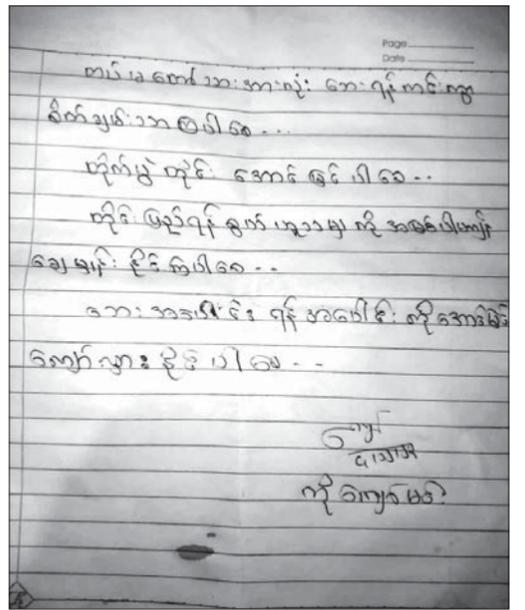 Page
Date
တပ်မတော်သားအားလုံး ဘေးရန်ကင်းကွာ
စိတ်ချမ်းသာကြပါစေ...
တိုက်ပွဲတိုင်း အောင်မြင်ပါစေ..
တိုင်းပြည်ရန်စွယ်ဟူသမျှကို အမြစ်ပါကျန်
ချေမှုန်းနိုင်ကြပါစေ..
ဘေးအပေါင်း ရန်အပေါင်းကို အောင်မြင်
ကျော်လွှားနိုင်ပါစေ..
ကို